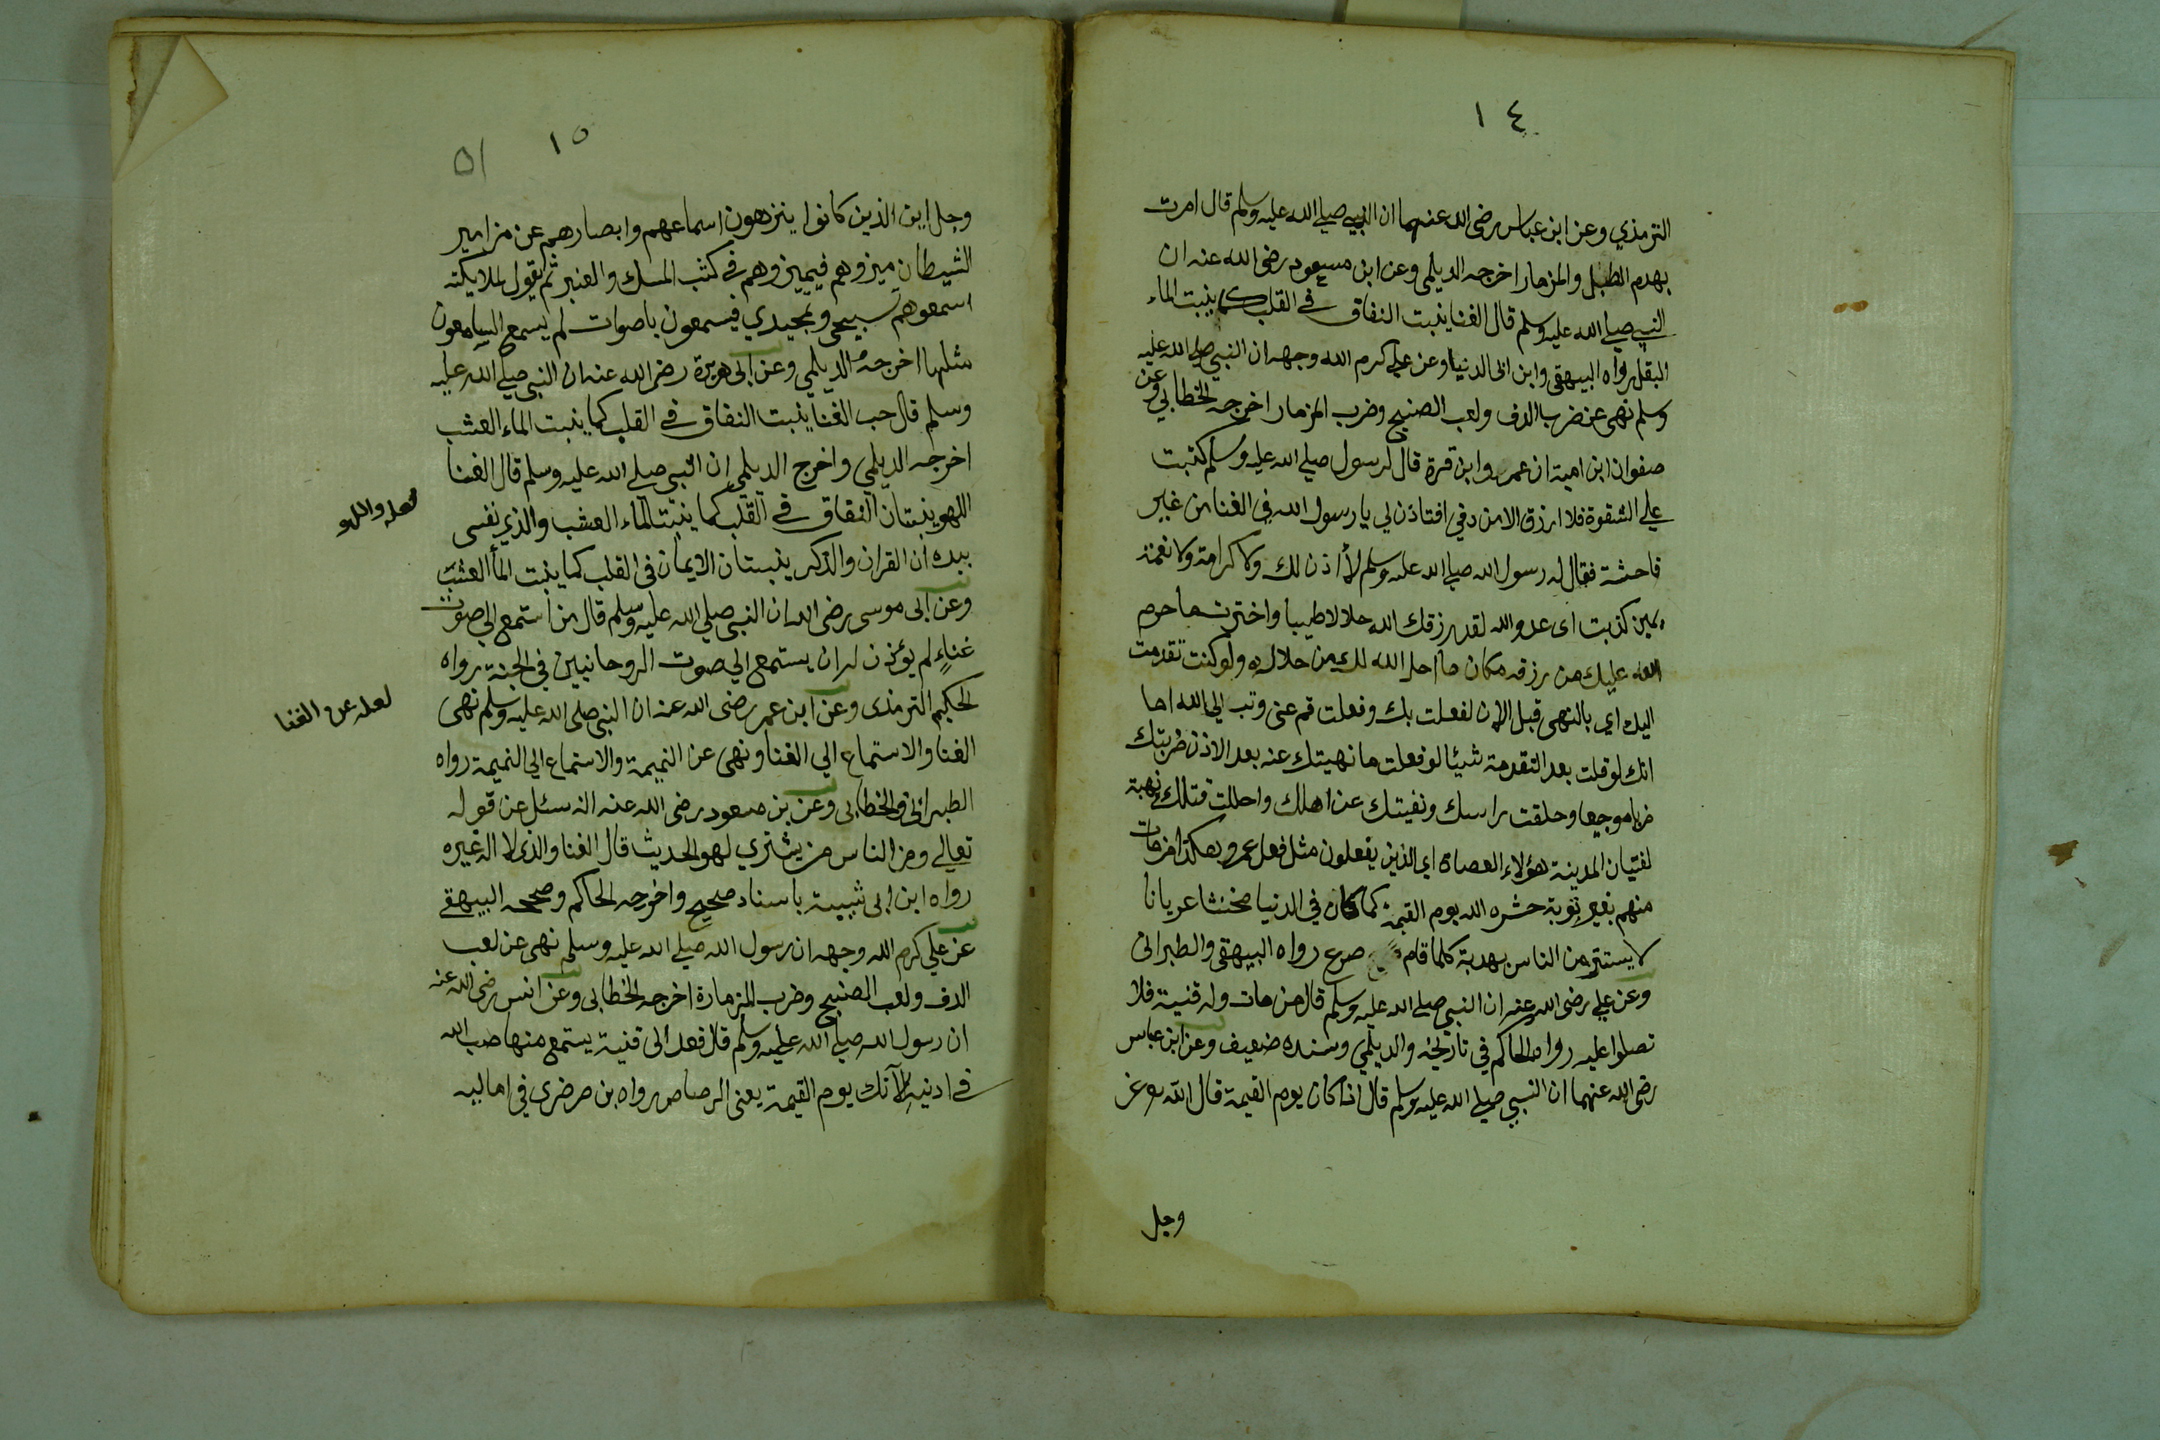 ١٤
الترمذي وعن ابن عباس رضى الله عنهما ان النبي صلى الله عليه وسلم قال امرت
بهدم الطبل والمزمار اخرجه الديلمى وعن ابن مسعود رضى الله عنه ان
النبي صلى الله عليه وسلم قال الغنا ينبت النفاق في القلب كما ينبت الماء
البقل رواه البيهقى وابن ابى الدنيا وعن على كرم الله وجهه ان النبي صلى الله عليه
وسلم نهى عن ضرب الدف ولعب الصنج وضرب المزمار اخرجه الخطابي وعن
صفوان ابن امية ان عمر وابن قرة قال لرسول صلى الله عليه وسلم كتبت
على الشقوة فلا ارزق الا من دفي افتاذن لي يا رسول الله في الغنا من غير
فاحشة فقال له رسول الله صلى الله عليه وسلم لا أذن لك ولا كرامة ولا نعمة
عين كذبت اى عدو الله لقد رزقك الله حلالا طيبا واخترت ما حرم
الله عليك من رزقه مكان ما احل الله لك من حلاله ولو كنت تقدمت
اليك اي بالنهى قبل الان لفعلت بك وفعلت قم عنى وتب الى الله اما
انك لو قلت بعد التقدمة شيئا لو فعلت ما نهيتك عنه بعد الاذن ضربتك
ضربا موجعا وحلقت راسك ونفيتك عن اهلك واحللت قتلك نهبة
لفتيان المدينة هؤلاء العصاة اي الذين يفعلون مثل فعل عمر وهكذا من مات
منهم بغير توبة حشره الله يوم القيمة كما كان في الدنيا مخنثا عريانا
لا يستتر من الناس بهدبة كلما قام صرع رواه البيهقى والطبرانى
وعن على رضى الله عنه ان النبي صلى الله عليه وسلم قال من مات وله قنية فلا
تصلوا عليه رواه الحاكم في تاريخه والديلمي وسنده ضعيف وعن ابن عباس
رضى الله عنهما ان النبي صلى الله عليه وسلم قال اذا كان يوم القيمة قال الله عز
وجل
١٥
٥١
وجل اين الذين كانوا ينزهون اسماعهم وابصارهم عن مزامير
الشيطان ميزوهم فيميزوهم في كثب المسك والعنبر ثم يقول لملايكته
اسمعوهم تسبيحى وتمجيدي فيسمعون باصوات لم يسمع السامعون
مثلها اخرجه الديلمي وعن ابى هريرة رضى الله عنه ان النبي صلى الله عليه
وسلم قال حب الغنا ينبت النفاق في القلب كما ينبت الماء العشب
اخرجه الديلمي واخرج الديلمي ان النبي صلى الله عليه وسلم قال الغنا
اللهو ينبتان النفاق في القلب كما ينبت الماء العشب والذي نفسى
بيده ان القران والذكر ينبتان الايمان في القلب كما ينبت المأ العشب
وعن ابى موسى رضى الله ان النبي صلى الله عليه وسلم قال من استمع الى صوت
غناء لم يؤذن له ان يستمع الى صوت الروحانيين في الجنة رواه
الحكيم الترمذى وعن ابن عمر رضى الله عنه ان النبي صلى الله عليه وسلم نهى
الغنا والاستماع الي الغنا ونهى عن النميمة والاستماع الي النميمة رواه
الطبرانى والخطابى وعن بن مسعود رضى الله عنه انه سئل عن قوله
تعالى ومن الناس من يشتري لهو الحديث قال الغنا والذى لا اله غيره
رواه ابن ابى شيبة باسناد صحيح واخرجه الحاكم وصححه البيهقى
عن علي كرم الله وجهه ان رسول الله صلى الله عليه وسلم نهى عن لعب
الدف ولعب الصنج وضرب المزمارة اخرجه الخطابى وعن انس رضى الله عنه
ان رسول الله صلى الله عليه وسلم قال من قعد الى قنية يستمع منها صب الله
في ادنيه الآنك يوم القيمة يعنى الرصاص رواه بن صرصرى في اماليه
لعله واللهو
لعله عن الغنا